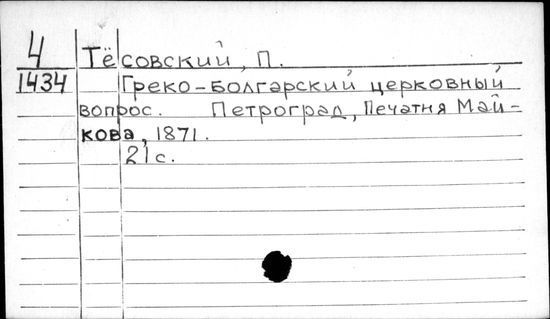 4 Тёсовский, П.
1434 Греко-болгарский церковный
вопрос. Петроград, Печатня Май-
кова, 1871.
21с.